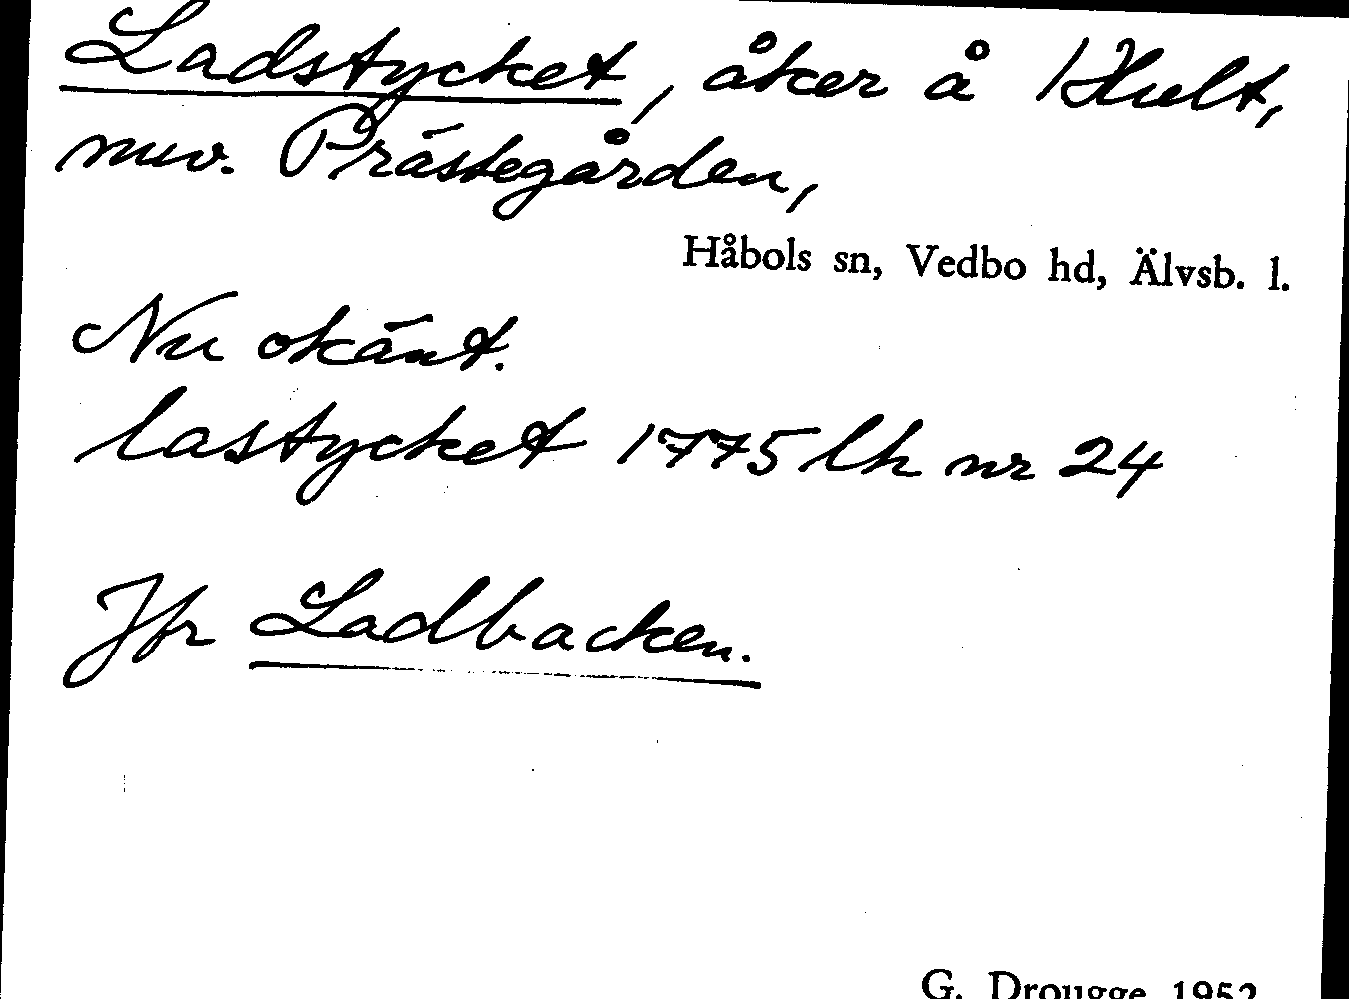 Ladstycket, åker å Hult,
nuv. Prästegården,
Håbols sn, Vedbo hd, Älvsb. l.
Nu okänt.
lastycket 1775 lh nr 24
Jfr Ladbacken.
G. Drougge 1952